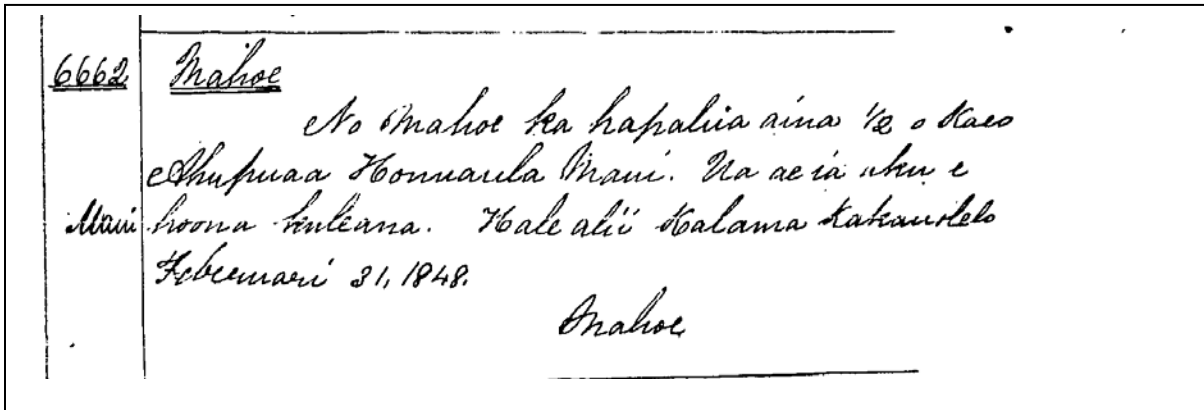 6662 Mahoe
No Mahoe ka hapalua aina 1/2 o Kaeo
Ahupuaa Honuaula Maui. Ua ae ia aku e
Maui hoona kuleana. Hale alii Kalama Kakauolelo
Feberuari 31, 1848.
Mahoe